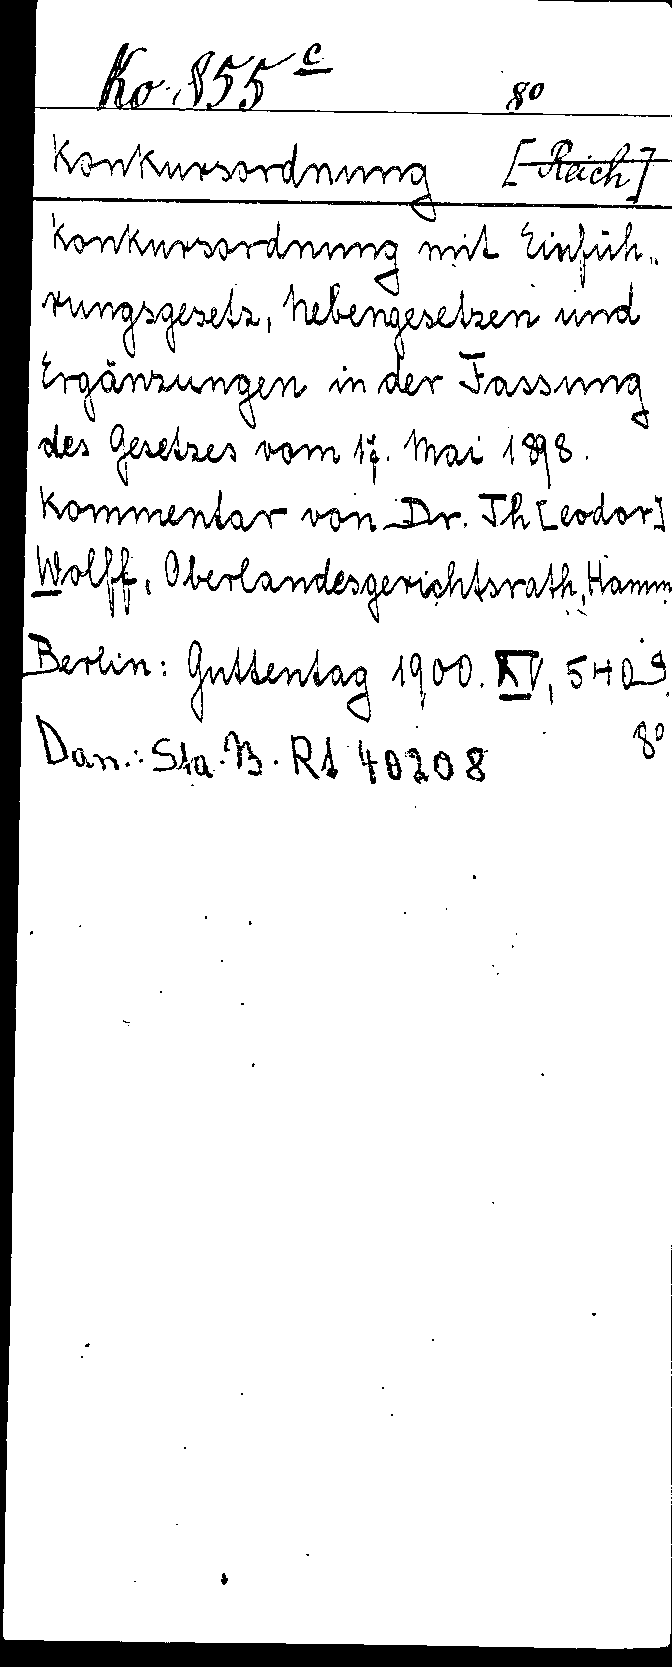 Ko 855 c 8°
Konkursordnung [Reich]
Konkursordnung mit Einfüh-
rungsgesetz, Nebengesetzen und
Ergänzungen in der Fassung
des Gesetzes vom 17. Mai 1898.
Kommentar von Dr. Th[eodor]
Wolff, Oberlandesgerichtsrath, Hamm
Berlin: Guttentag 1900. XV, 540 S.
8°
Dan.: Sta. B. Rt 40208